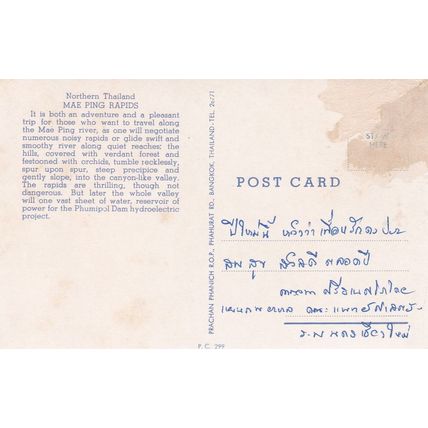 Northern Thailand
MAE PING RAPIDS
It is both an adventure and a pleasant
trip for those who want to travel along
the Mae Ping river, as one will negotiate
numerous noisy rapids or glide swift and
smoothly along quiet reaches: the
hills, covered with verdant forest and
festooned with orchids, tumble recklessly,
spur upon spur, steep precipice and
gently slope, into the canyon-like valley.
The rapids are thrilling, though not
dangerous. But later the whole valley
will one vast sheet of water, reservoir of
power for the Phumipol Dam hydroelectric
project.
PRACHAN PHANICH R.O.P., PHAHURAT RD., BANGKOK, THAILAND-TEL.
P. C. 299
HERE
POST CARD
ปีใหม่นี้ หวังว่า เพื่อนรัก
สุข สวัสดี ตลอดปี
คณะแพทย์ศาสตร์
ร.พ นครเชียงใหม่